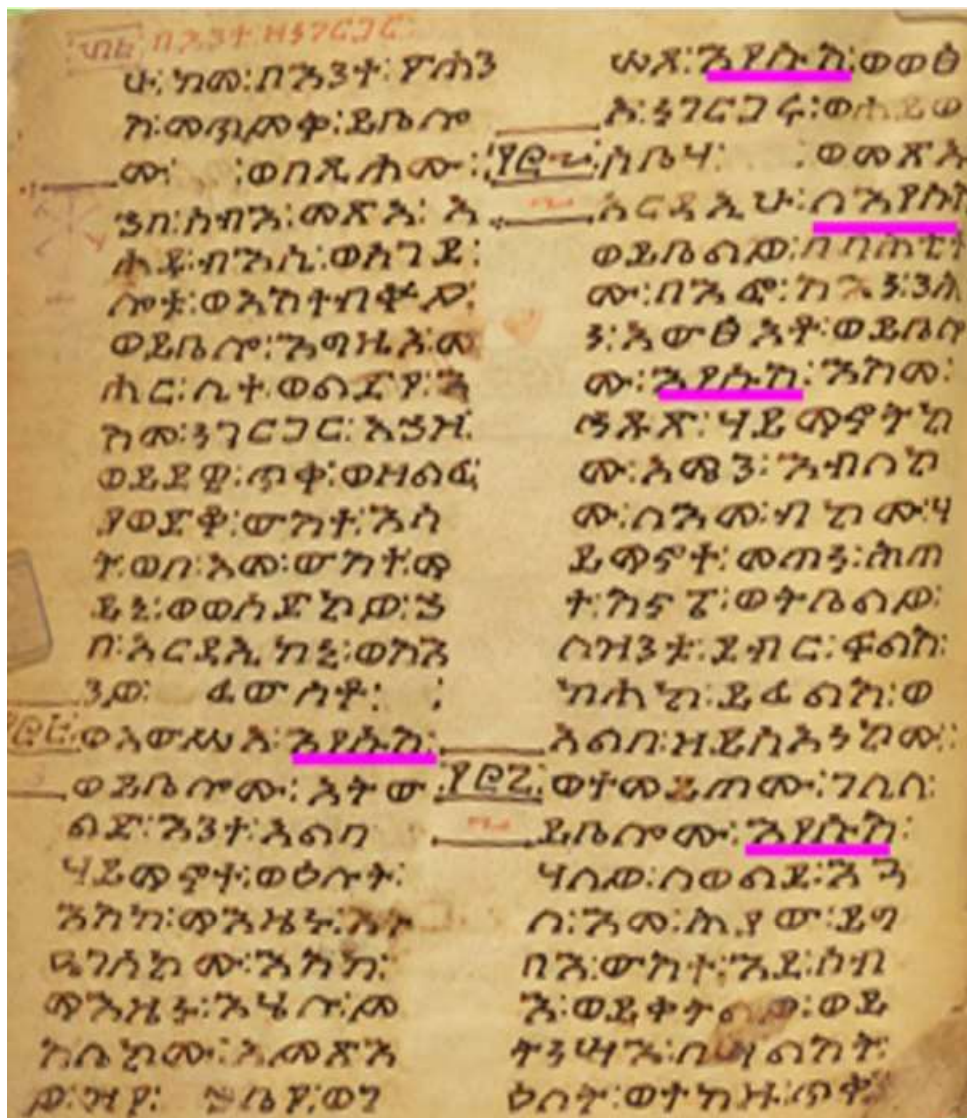 በእንተ፡ ዘነገርጋር፡
ሁ፡ ከመ፡ በእንተ፡ ዮሐን
ስ፡ መጥምቀ፡ ይቤሎ
ሙ፡ ፡ወበጺሖሙ፡
ኀበ፡ ሰብእ፡ መጽአ፡ አ
ሐዱ፡ ብእሲ፡ ወሰገደ፡
ሎቱ፡ ወአስተብቍዖ፡
ወይቤሎ፡ እግዚእ፡ መ
ሐር፡ ሊተ፡ ወልድየ፡ እ
ስመ፡ ነገርጋር፡ አኀዞ፡
ወይደዊ፡ ጥቀ፡ ወዘልፈ፡
ያወድቆ፡ ውስተ፡ እሳ
ት፡ ወቦ፡ አመ፡ ውስተ፡ ማ
ይኒ፡ ወወሰድክዎ፡ ኀ
በ፡ አርዳኢከኒ፡ ወስእ
ንዎ፡ ፈውሶቶ፡ ፡
ወአውሥአ፡ እየሱስ፡
ወይቤሎሙ፡ አትው
ልድ፡ እንተ፡ አልባ
ሃይማኖት፡ ወዕሉት፡
እስከ፡ ማእዜኑ፡ እት
ዔገሰክሙ፡ እስከ፡
ማእዜኑ፡ እሄሉ፡ ም
ስሌክሙ፡ አምጽእ
ዎ፡ ዝየ፡ ኀቤየ፡ ወገ
ሠጾ፡ እየሱስ፡ ወወፅ
አ፡ ነገርጋሩ፡ ወሐይወ
ሶቤሃ፡ ፡ ወመጽአ
አርዳኢሁ፡ ለእየሱስ
ወይቤልዎ፡ በባሕቲቶ
ሙ፡ በእፎ፡ ስእነ፡ ንሕ
ነ፡ አውፅአቶ፡ ወይቤሎ
ሙ፡ እየሱስ፡ እስመ፡
ሕጹጽ፡ ሃይማኖትክ
ሙ፡ አሜን፡ እብለክ
ሙ፡ ለእመ፡ ብክሙ፡ ሃ
ይማኖት፡ መጠነ፡ ሕጠ
ተ፡ ስናፔ፡ ወትቤልዎ፡
ለዝንቱ፡ ደብር፡ ፍልስ፡
ከሐከ፡ ይፈልስ፡ ወ
አልቦ፡ ዘይስአነክሙ፡
ወተመይጠሙ፡ ገሊላ፡
ይቤሎሙ፡ እየሱስ፡
ሃለዎ፡ ለወልደ፡ እጓ
ለ፡ እመ፡ ሕያው፡ ይግ
በእ፡ ውስተ፡ እደ፡ ሰብ
እ፡ ወይቀትልዎ፡ ወይ
ትነሣእ፡ በሣልስት፡
ዕለት፡ ወተከዙ፡ ጥቀ፡